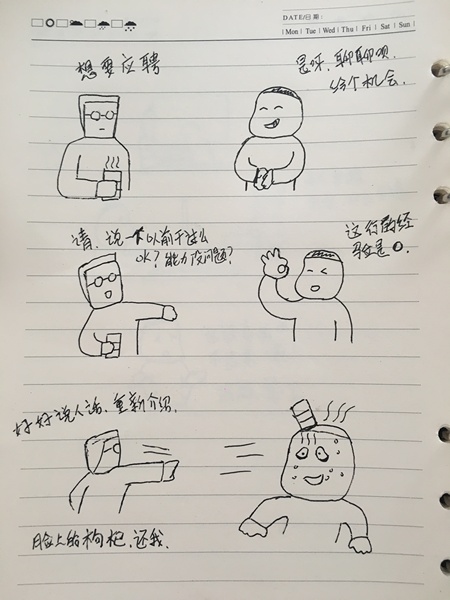 DATE/日期:
Mon Tue Wed Thu Fri Sat Sun
想要应聘
是呀,聊聊呗,
给个机会.
请,说一下以前干过么
OK?能力没问题?
这行的经
验是0.
好好说人话,重新介绍.
脸上的枸杞,还我.